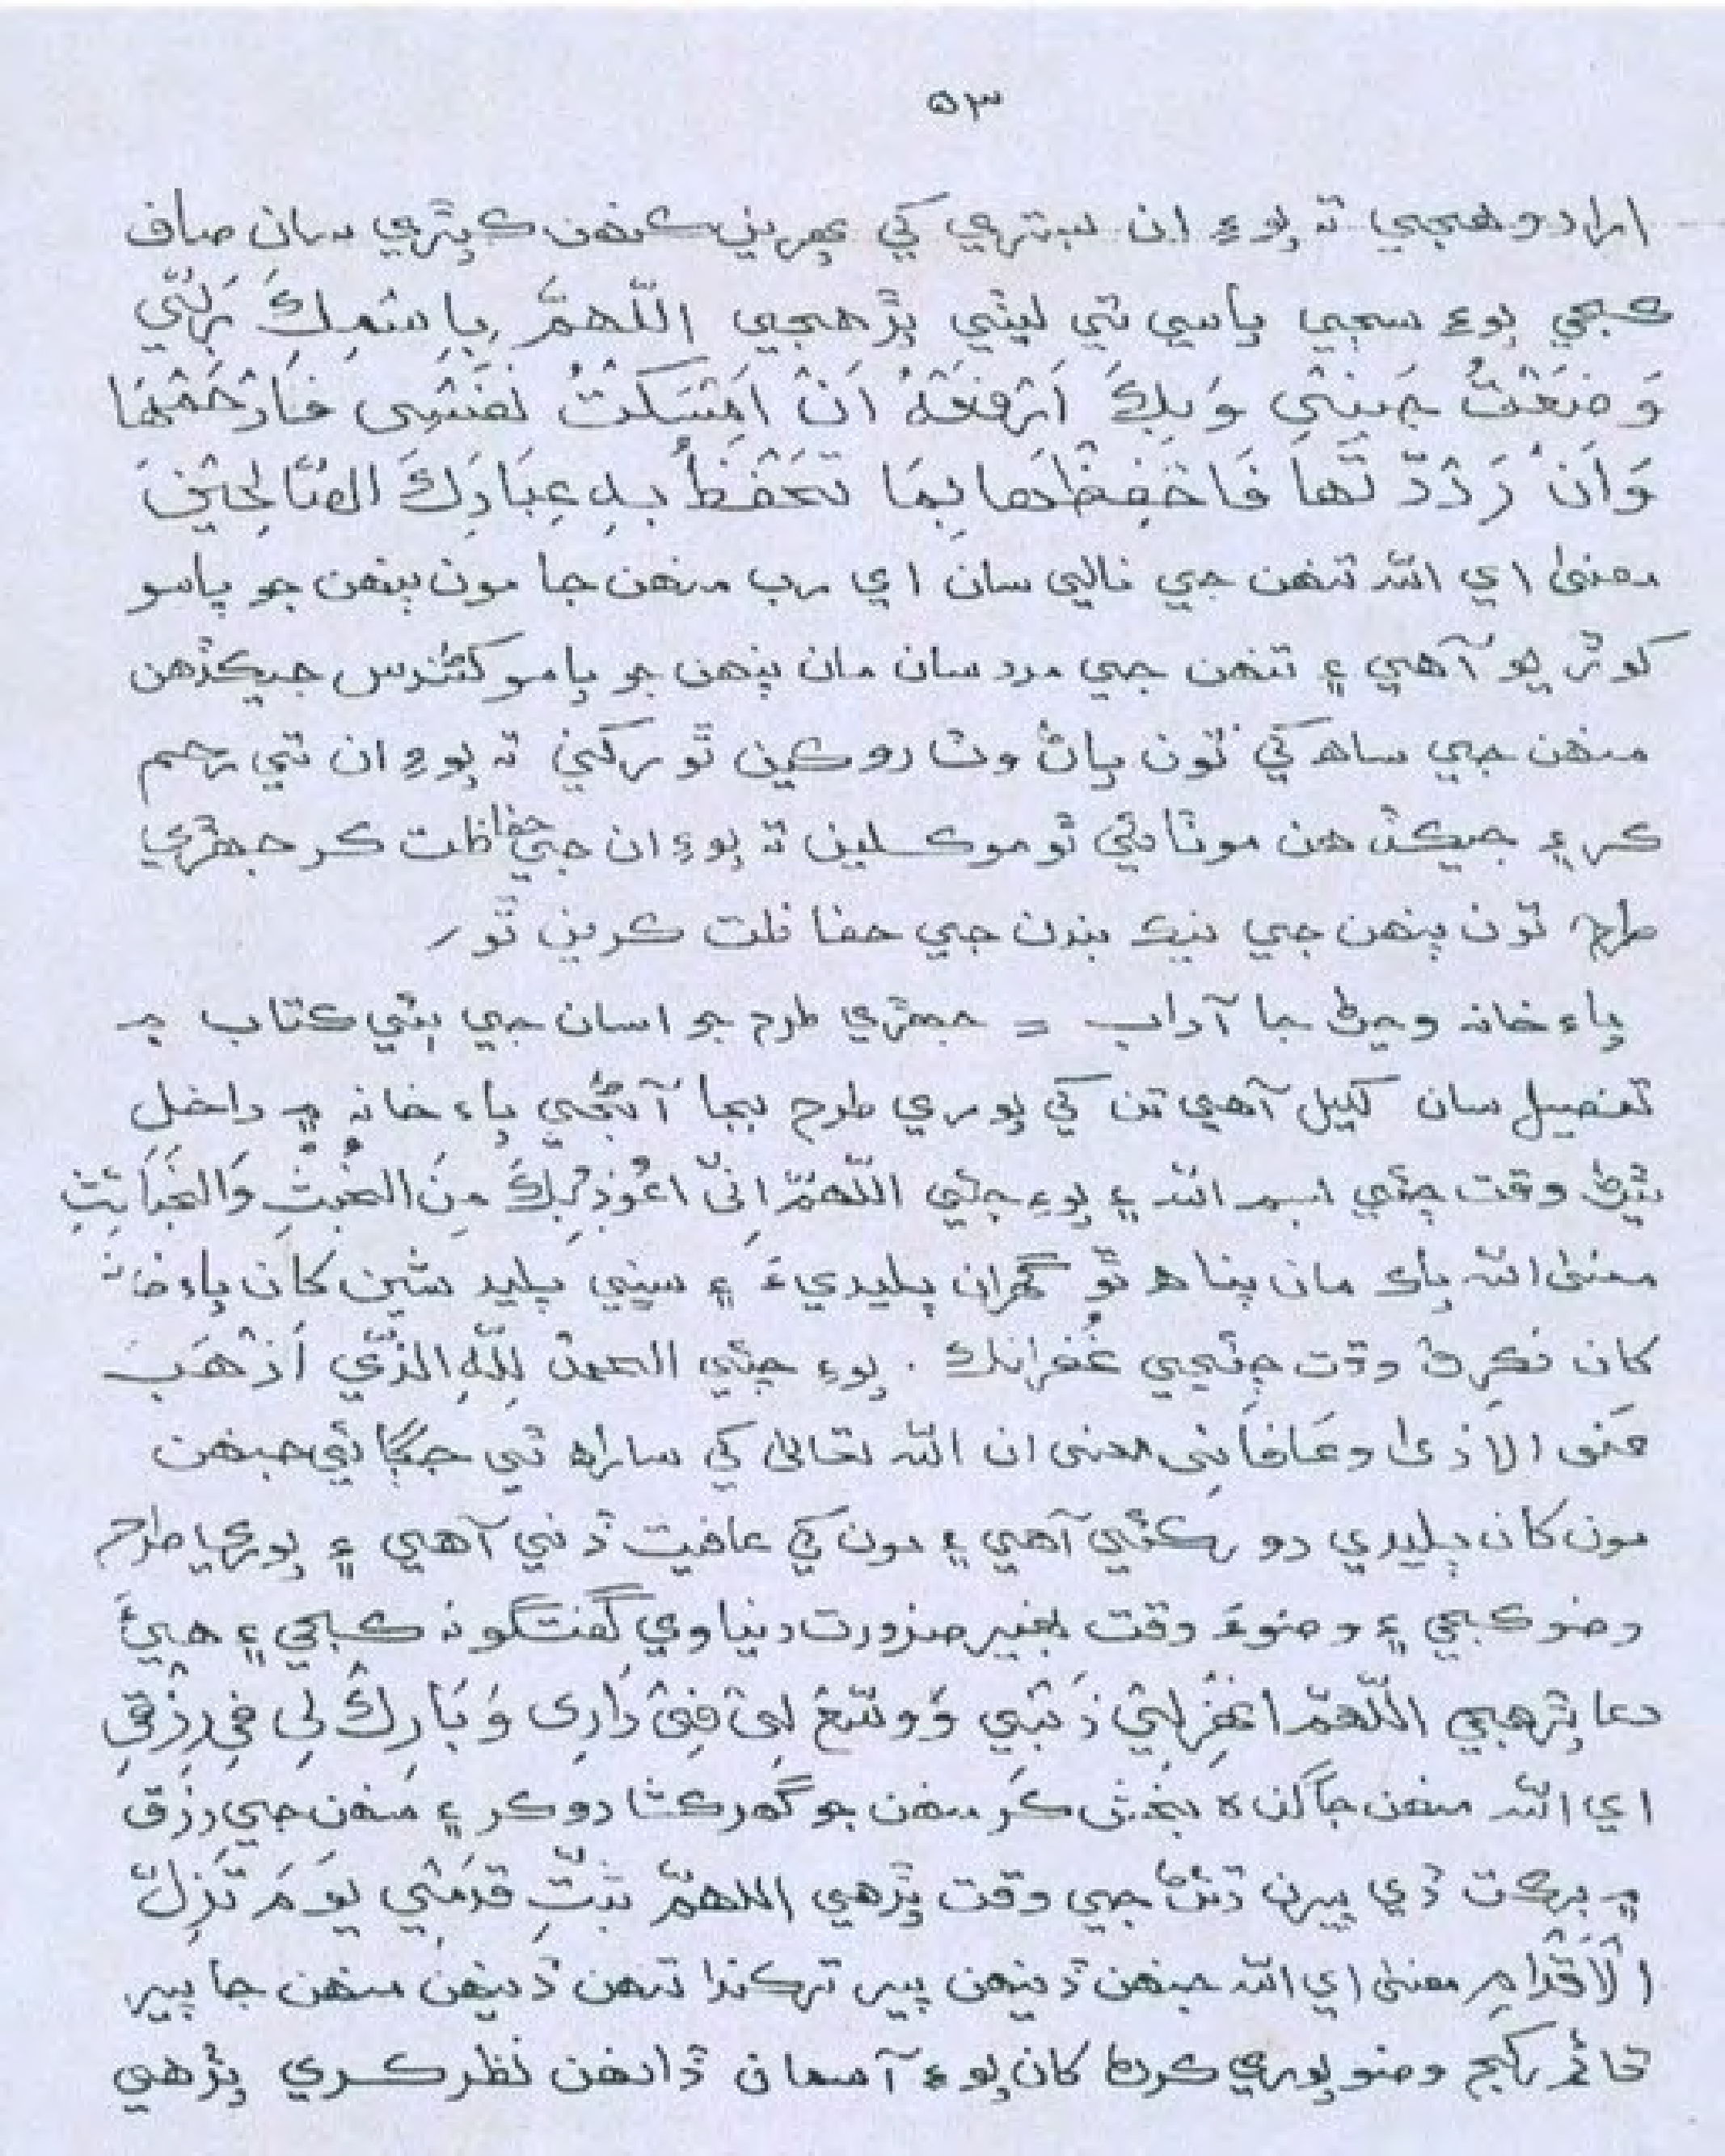 ٥٣
ارادو هجي ته پوءِ ان بستري کي چوريني ڪنهن ڪپڙي سان صاف
ڪجي پوءِ سڄي پاسي تي ليٽي پڙهجي اللّٰهمَّ بِاِسْمِكَ رَبِّيْ
وَضَعْتُ جَنبِيْ وَبِكَ اَرْفَعُهٗ اَنْ اَمْسَكْتَ نَفْسِی فَارْحَمْهَا
وَاَنْ رَدَدّتَّهَا فَاحْفِظْهَا بِمَا تَحْفَظُ بِہٖ عِبَادِكَ الصَّالِحِيْنَ
معنیٰ اي اللّٰه تنهن جي نالي سان اي رب منهن جا مون پنهن جو پاسو
کوڙيو آهي ۽ تنهن جي مدد سان مان پنهن جو پاسو کڻندس جيڪڏهن
منهن جي ساهه کي تون پاڻ وٽ روڪين ٿو رکين ته پوءِ ان تي رحم
ڪر ۽ جيڪڏهن موٽائي ٿو موڪلين ته پوءِ ان جي حفاظت ڪر جهڙي
طرح تون پنهن جي نيڪ بندن جي حفاظت ڪرين ٿو،
پاءِ خانه وڃڻ جا آداب = جهڙي طرح جو اسان جي ٻئي ڪتاب ۾
تفصيل سان لکيل آهي تن کي پوري طرح بجا آڻجي پاءِ خانه ۾ داخل
ٿيڻ وقت چئي بسم اللّٰه ۽ پوءِ چئي اللّٰهمّ اِنّیْ اعُوْذُبِكَ مِنَ الخُبثِ وَالخَبَائِثِ
معنیٰ اللّٰه پاڪ مان پناهه ٿو گهران پليديءَ ۽ سڀني پليد شين کان پاءِ خانه
کان نڪرڻ وقت چئجي غُفرانك . پوءِ چئي الحمدُ لِلّٰهِ الَّذِي اَذْهَبَ
عَنی الاذیٰ وعَافَانِی معنی ان اللّٰه تعالیٰ کي ساراه ٿي جڳائي جنهن
مون کان پليدي دور ڪئي آهي ۽ مون کي عافيت ڏني آهي ۽ پوري طرح
وضو ڪجي ۽ وضوءَ وقت بغير ضرورت دنياوي گفتگو نه ڪجي ۽ هيءَ
دعا پڙهجي اللّٰهمّ اغْفِرْلِيْ ذَنْبِي وَوسِّعْ لِیْ فِیْ دَارِی وَبَارِكْ لِی فِي رِزْقِي
اي اللّٰه منهن جا گناه بخش ڪر منهن جو گهر ڪشادو ڪر ۽ منهن جي رزق
۾ برڪت ڏي پيرن ڌوئڻ جي وقت پڙهي اللهمّ ثَبِّتْ قَدَمَيْ يَوَمَ تَزِلُّ
الْاَقْدَامِ معنیٰ اي اللّٰه جنهن ڏينهن پير ترڪندا تنهن ڏينهن منهن جا پير
قائم رکج وضو پوري ڪرڻ کان پوءِ آسمان ڏانهن نظر ڪري پڙهي